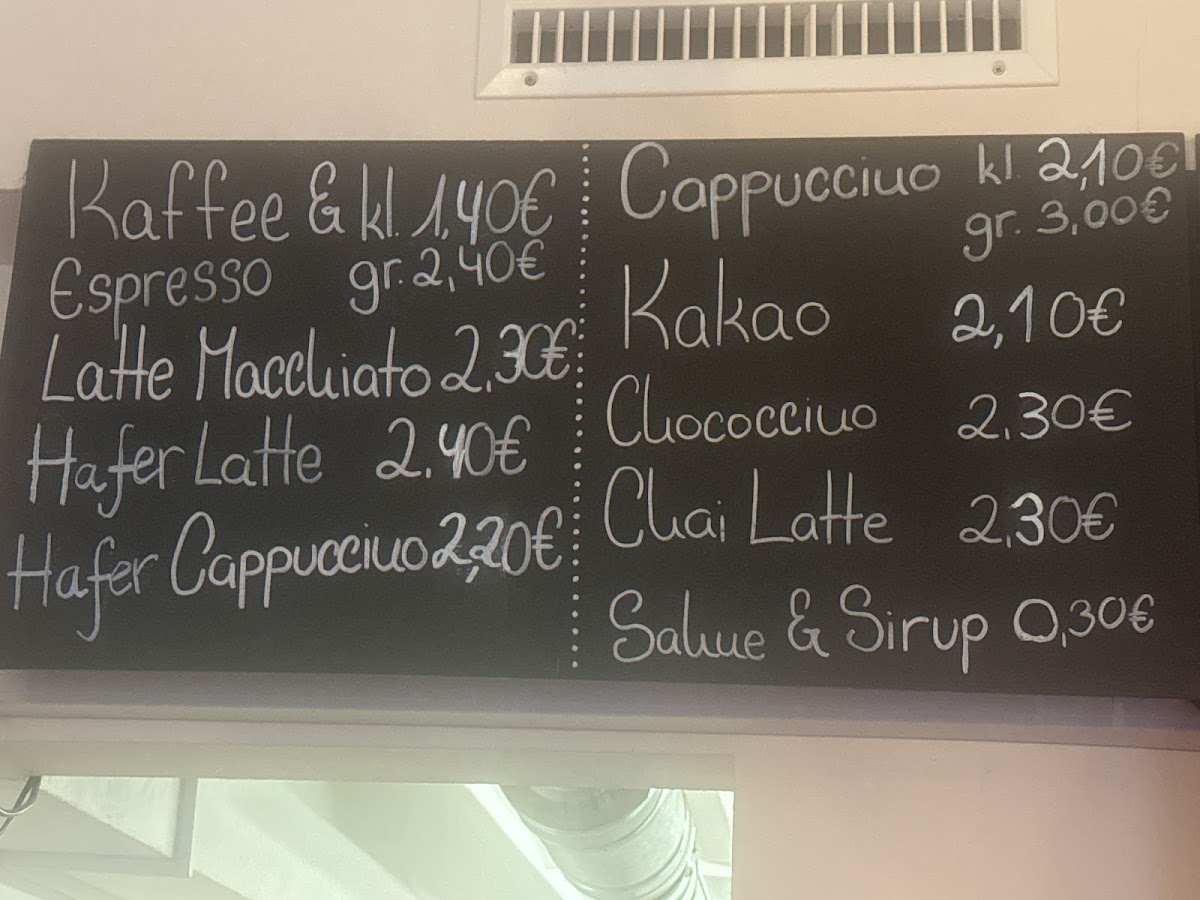 Kaffee & kl. 1,40€
Espresso gr. 2,40€
Latte Macchiato 2,30€
Hafer Latte 2.40€
Hafer Cappuccino 2,20€
Cappuccino kl. 2,10€
gr. 3,00€
Kakao 2,10€
Chococcino 2.30€
Chai Latte 2,30€
Sahne & Sirup 0,30€